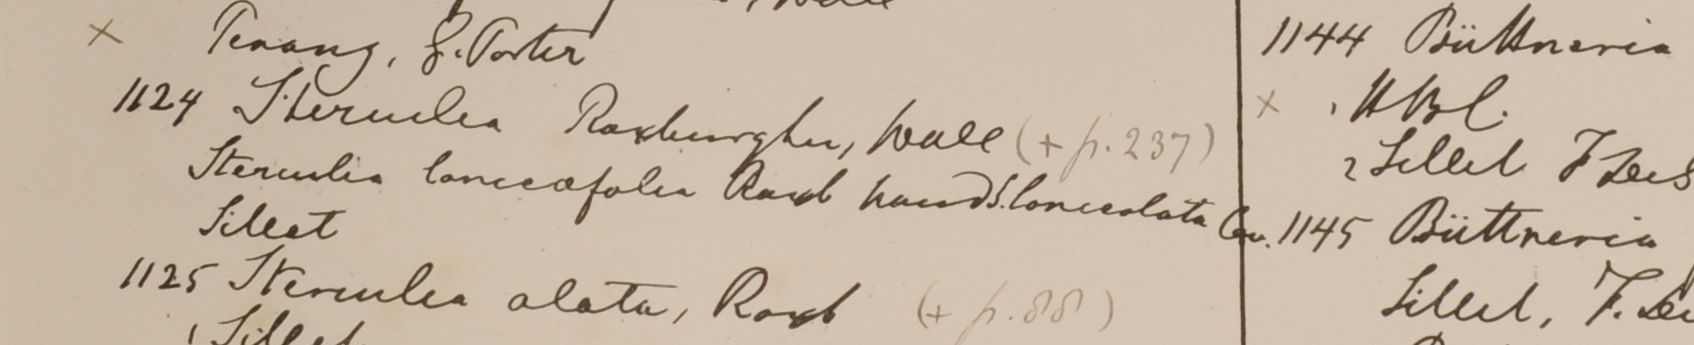 Penang, G. Porter
1124 Sterculea Roxburghii, Wall (+ p. 237)
Sterculia lanceaefolia Roxb haud S. lanceolata Cav.
Sillet
1125 Sterculea alata, Roxb (+ p. 88)
1 Sillet
1144 Büttneria
HBC.
2 Sillet F De S
1145 Büttneria
Sillet, F. De